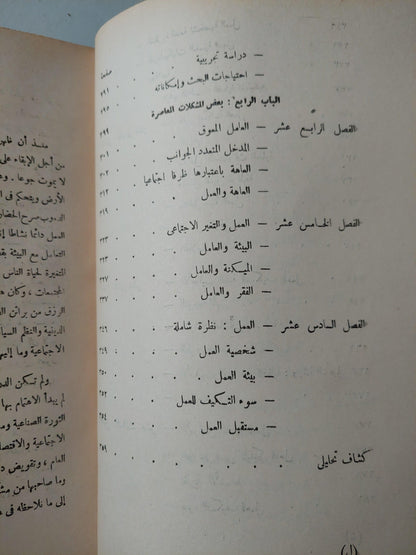 صفحة
— دراسة تجريبية . . .
— احتياجات البحث وإمكاناته . ٢٩١
الباب الرابع : بعض المشكلات المعاصرة . ٢٩٥
الفصل الرابع عشر — العامل المعوق . . . ٢٩٩
— المدخل المتعدد الجوانب . ٣٠١
— العاهة باعتبارها ظرفا اجتماعيا . ٣٠٣
— العاهة والعمل . . .
الفصل الخامس عشر — العمل والتغير الاجتماعى . ٣٢٣
— البيئة والعامل . . .
— الميكنة والعامل . . .
— الفقر والعامل . . . ٣٣٧
الفصل السادس عشر — العمل : نظرة شاملة . . ٣٤٧
— شخصية العمل . . . ٣٤٩
— بيئة العمل . . .
— سوء التكيف للعمل . . ٣٥٢
— مستقبل العمل . . . ٣٥٤
كشاف تحليلى . . . . . . ٣٥٩
(ل)
منذ أن
من أجل الإبقاء على
لا يموت جوعا ،
الأرض ويتحكم فى
الدؤوب صرح الحضار
العمل دائما نشاطا
التعامل مع البيئة
المتغيرة لحياة الناس
المجتمعات ، وكان
الرزق من براثن
الدينية والنظم السيا
الاجتماعية وما إليها
ولم تكن
لم يبدأ الاهتمام بها
الثورة الصناعية وما
الاجتماعية والاقتصا
العام ، وتقويض
وما صاحبها من
إلى ما نلاحظه فى